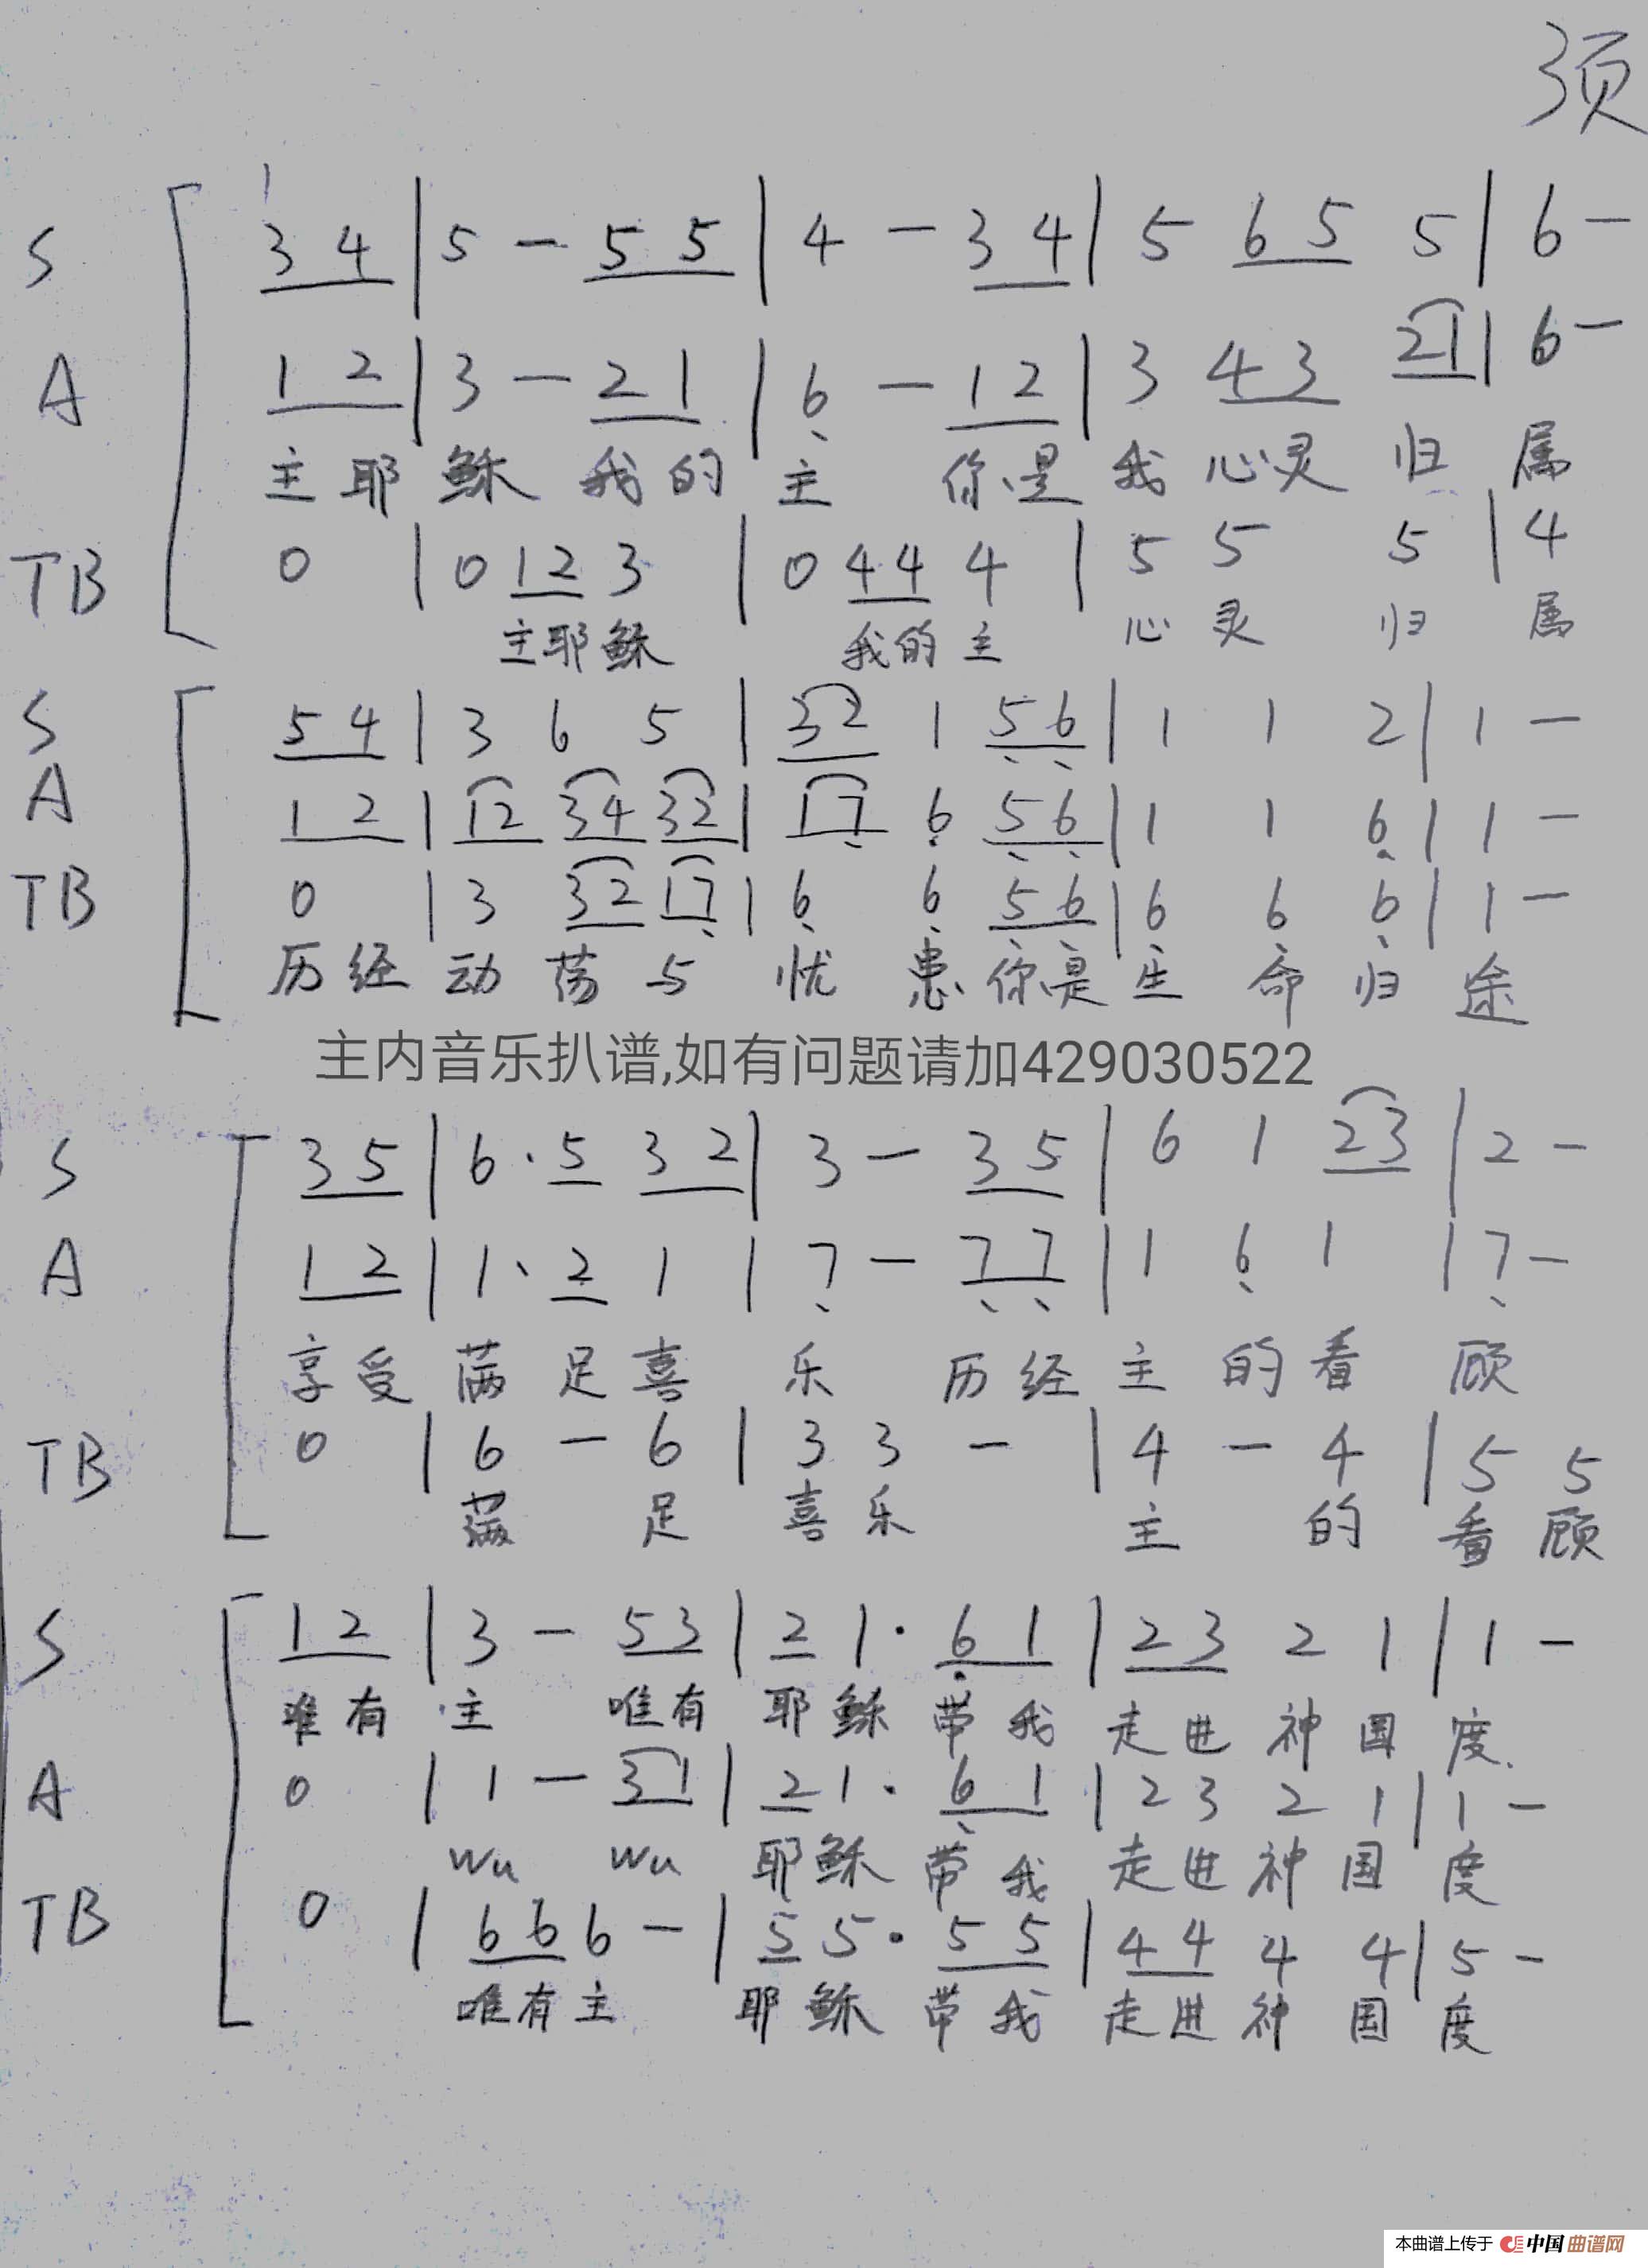 3页
S 3 4 | 5 - 5 5 | 4 - 3 4 | 5 6 5 5 | 6 -
A 1 2 | 3 - 2 1 | 6 - 1 2 | 3 4 3 2 1 | 6 -
主 耶 稣 我 的 主 你 是 我 心 灵 归 属
TB 0 | 0 1 2 3 | 0 4 4 4 | 5 5 5 | 4
主 耶 稣 我 的 主 心 灵 归 属
S 5 4 | 3 6 5 | 3 2 1 5 6 | 1 1 2 | 1 -
A 1 2 | 1 2 3 4 3 2 | 1 7 6 5 6 | 1 1 6 | 1 -
TB 0 | 3 3 2 1 7 | 6 6 5 6 | 6 6 6 | 1 -
历 经 动 荡 与 忧 患 你 是 生 命 归 途
主内音乐扒谱,如有问题请加429030522
S 3 5 | 6 · 5 3 2 | 3 - 3 5 | 6 1 2 3 | 2 -
A 1 2 | 1 · 2 1 | 7 - 7 7 | 1 6 1 | 7 -
享 受 满 足 喜 乐 历 经 主 的 看 顾
TB 0 | 6 - 6 | 3 3 - | 4 - 4 | 5 5
满 足 喜 乐 主 的 看 顾
S 1 2 | 3 - 5 3 | 2 1 · 6 1 | 2 3 2 1 | 1 -
唯 有 主 唯 有 耶 稣 带 我 走 进 神 国 度
A 0 | 1 - 3 1 | 2 1 · 6 1 | 2 3 2 1 | 1 -
wu wu 耶 稣 带 我 走 进 神 国 度
TB 0 | 6 6 6 - | 5 5 · 5 5 | 4 4 4 4 | 5 -
唯 有 主 耶 稣 带 我 走 进 神 国 度
本曲谱上传于 中国曲谱网